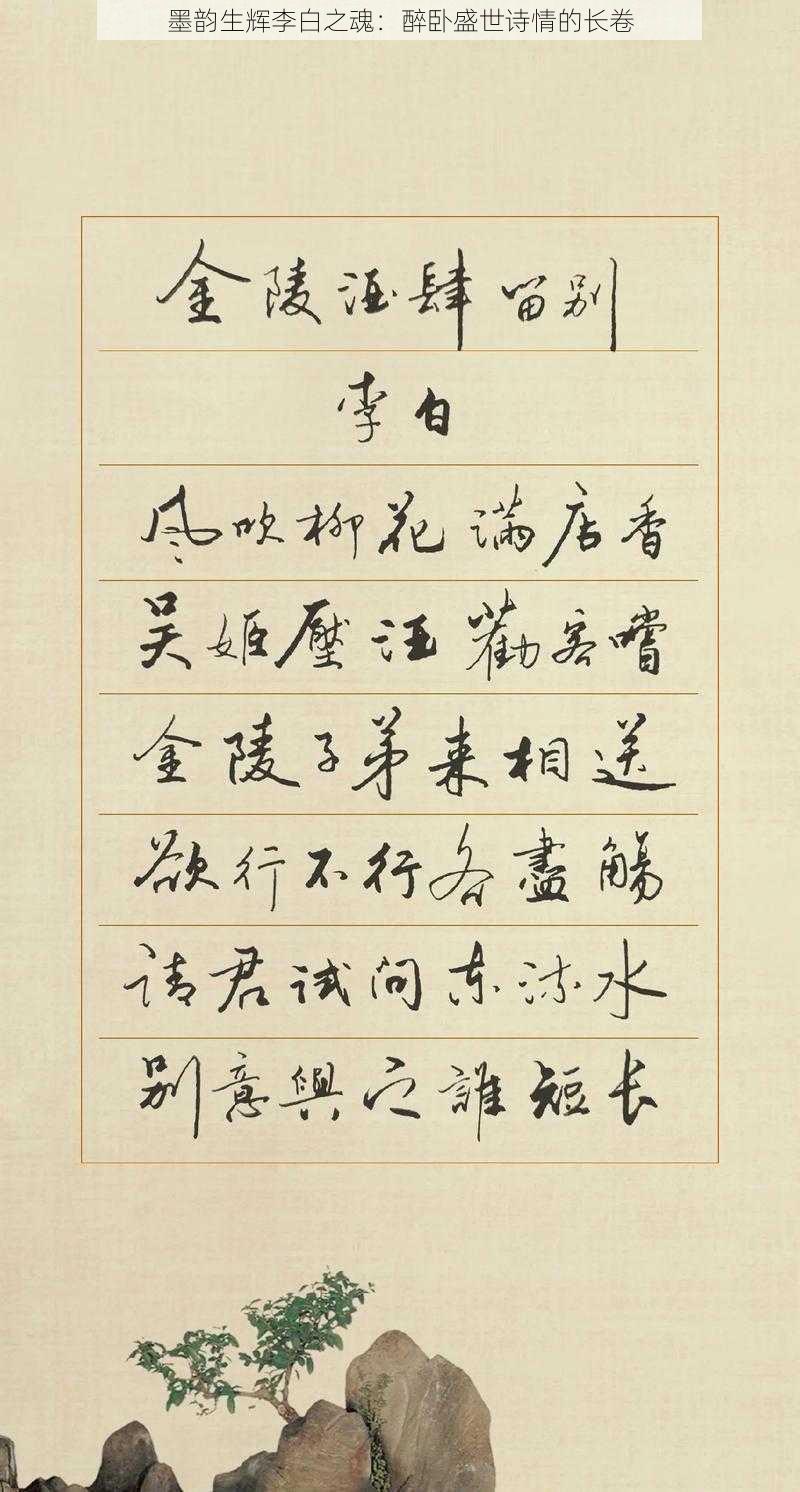 墨韵生辉李白之魂：醉卧盛世诗情的长卷
金陵酒肆留别
李白
风吹柳花满店香
吴姬壓酒勸客嚐
金陵子弟来相送
欲行不行各盡觴
请君试问东流水
别意與之誰短长